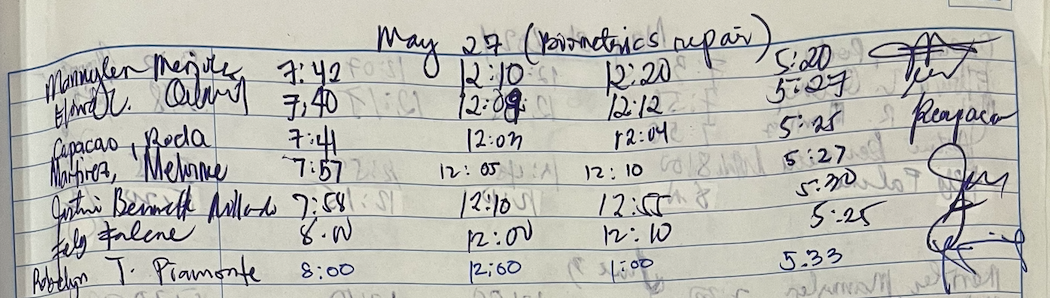 May 27 (Biometrics repair)
7:42 12:10 12:20 5:20
7:40 12:09 12:12 5:27
Capacao, Roda 7:41 12:03 12:04 5:25
Martirez, Melvine 7:57 12:05 12:10 5:27
Bennett 7:58 12:10 12:55 5:30
Felg Falene 8:00 12:00 12:10 5:25
Robelyn T. Piamonte 8:00 12:00 1:00 5:33